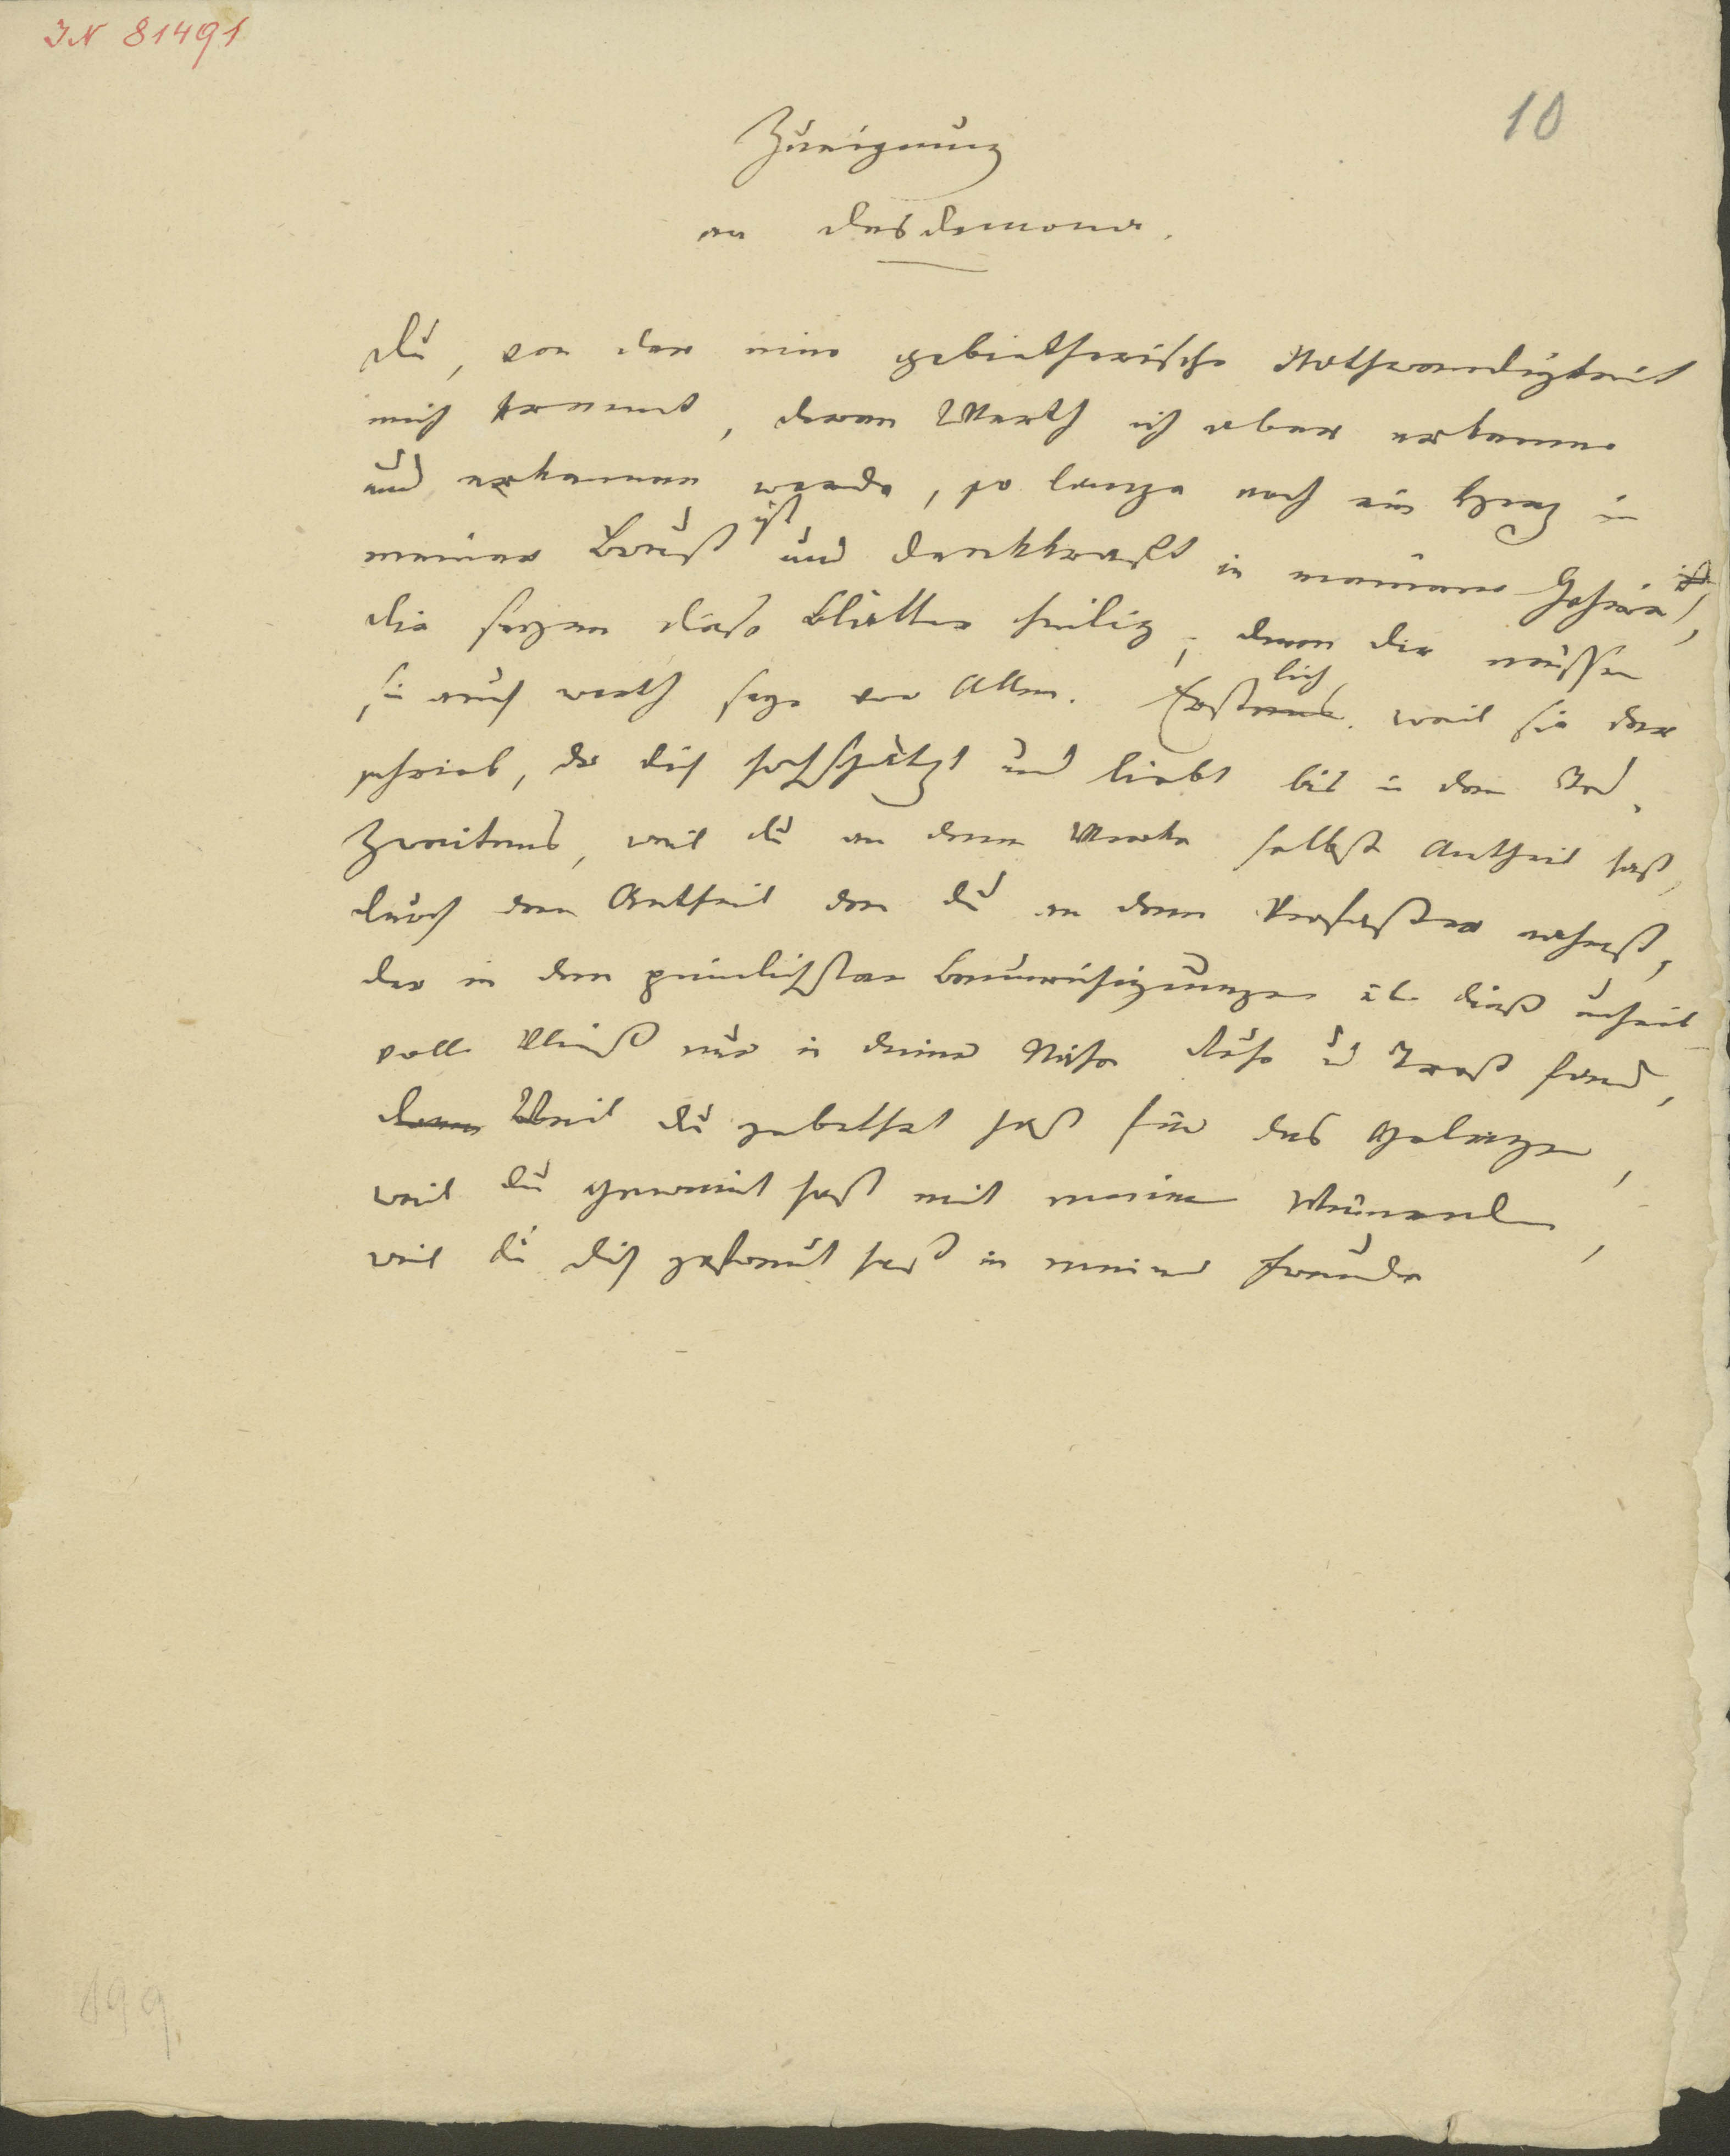 IN 81491
10
Zueignung
an Desdemona.
Du, von der eine gebietherische Nothwendigkeit
mich trennt, deren Werth ich aber erkenne
und erkennen werde, so lange noch ein Herz in
meiner Brust ist und Denkkraft in meinem Gehirn ist,
Dir seyen diese Blätter heilig, denn dir müssen
sie auch werth seyn vor Allen. Erstens lich weil sie der
schrieb, der dich hochschätzt und liebt bis in den Tod.
Zweitens, weil du an dem Werke selbst Antheil hast,
durch den Antheil den du an dem Verfasser nahmst,
der in den peinlichsten Beunruhigungen über dieß unheil
volle Werk nur in deiner Nähe Ruhe und Trost fand,
denn Weil du gebethet hast für das Gelingen,
weil du geweint hast mit meinen
weil du dich gefreut hast in meiner Freude
199.